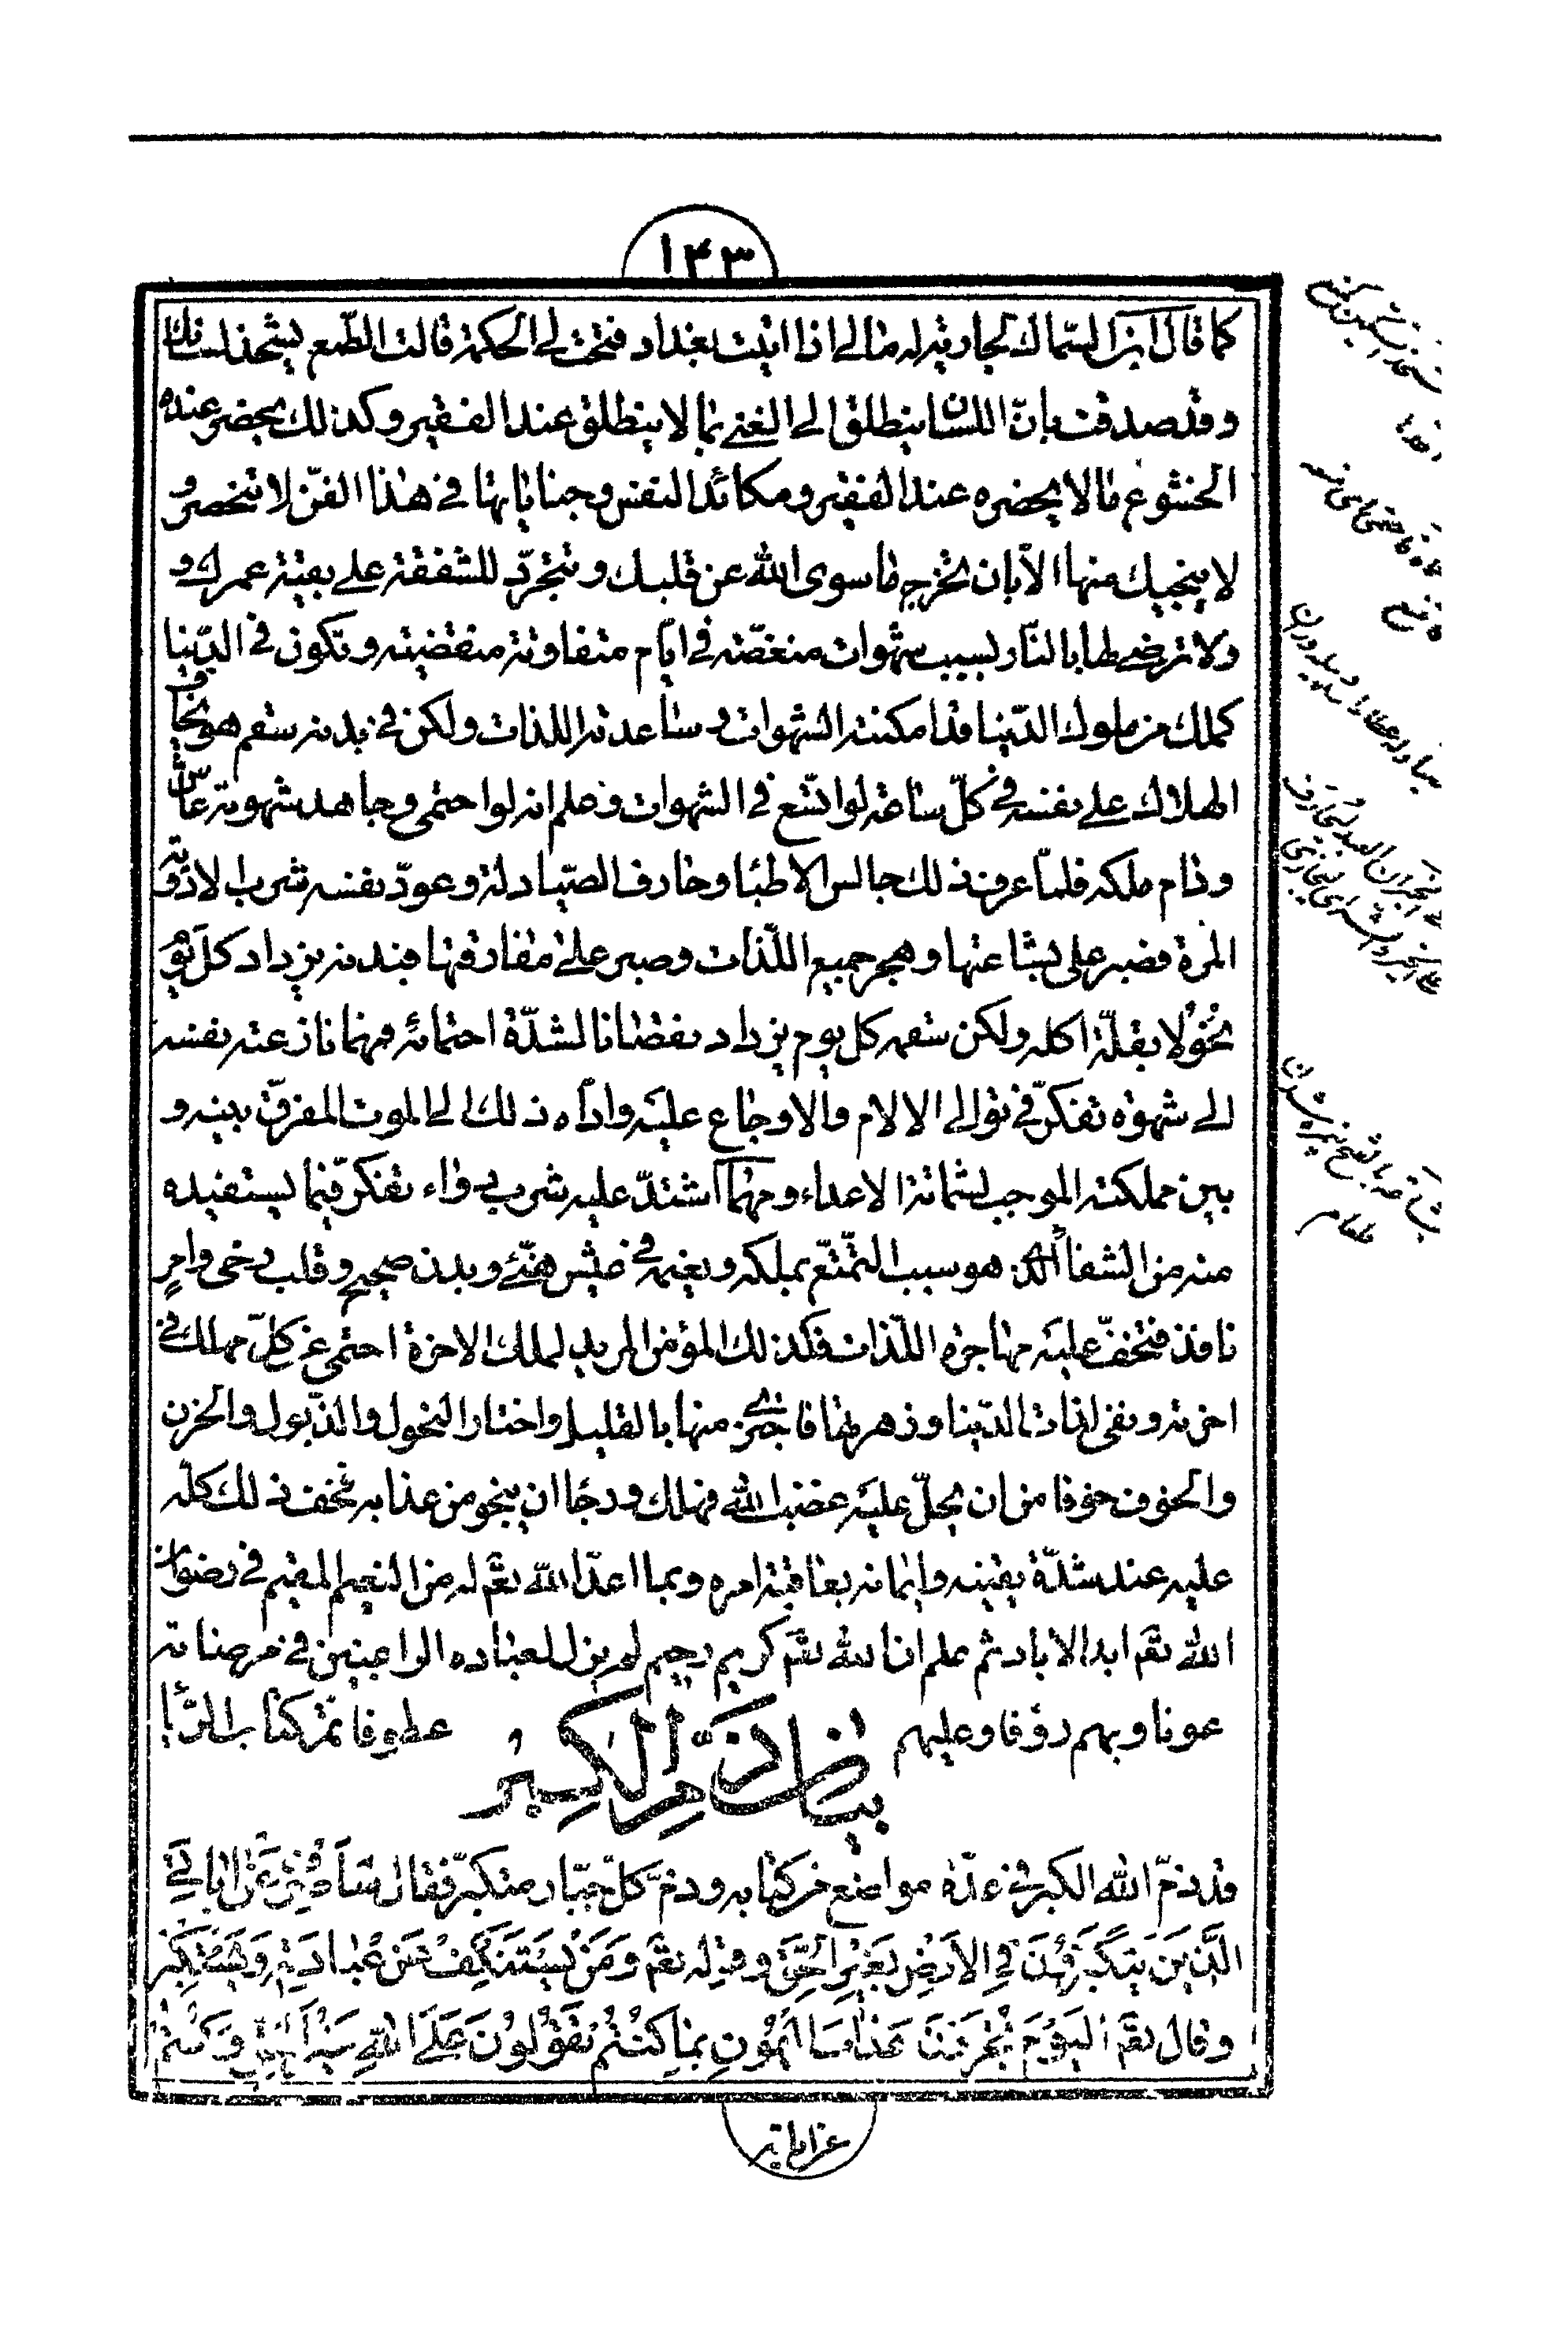 ١٤٣
كما قال ابن السماك لجاريته له مالى اذا اتيت بغداد فتحت لى الحكمة قالت الطمع يشحذ لسانك
وقد صدقت بانّ اللسان ينطلق الى الغنى بما لا ينطلق عند الفقير وكذلك يحضر عنده
الخشوع ما لا يحضره عند الفقير ومكائد النفس وجناياتها فى هذا الفنّ لا تنحصر و
لا ينجيك منها الّا بان تخرج ما سوى الله عن قلبك وتتجرّد للشفقة على بقيّة عمرك و
ولا ترضى لها بالنّار بسبب شهوات منغصّة فى ايّام متفاوتة منقضية وتكون فى الدّنيا
كملك من ملوك الدّنيا قد امكنته الشهوات وساعدته اللذات ولكن فى بدنه سقم هو يخاف
الهلاك على نفسه فى كلّ ساعة لو اتّسع فى الشهوات وعلم انه لو احتمى وجاهد شهوته عاش
ودام ملكه فلمّا عرف ذلك جالس الاطبّا وحارف الصّيادلة وعوّد نفسه شرب الادوية
المرّة فصبر على بشاعتها وهجر جميع اللّذات وصبر على مفارقتها فبدنه يزداد كلّ يوم
نحولا بقلّة اكله ولكن سقمه كل يوم يزداد نقصانا لشدّة احتمائه فمهما نازعته نفسه
الى شهوة تفكّر فى توالى الالام والاوجاع عليه واداه ذلك الى الموت المفرّق بينه و
بين مملكته الموجب لشماتة الاعداء ومهما اشتدّ عليه شرب دواء تفكّر فيما يستفيده
منه من الشفا الّذى هو سبب التمتّع بملكه ونعيمه فى عيش هنّئ وبدن صحيح وقلب رخى وامر
نافذ فتخفّ عليه مهاجرة اللّذات فكذلك المؤمن المريد لملك الاخرة احتمى عن كلّ مهلك فى
اخرته ونفى لذات الدّنيا وزهرتها فاجتزى منها بالقليل واختار النحول والذّبول والحزن
والخوف خوفا من ان يحلّ عليه غضب الله فهلك ورجا ان ينجو من عذابه فخف ذلك كلّه
عليه عند شدّة يقينه وايمانه بعاقبة امره وبما اعدّ الله تعم له من النعيم المقيم فى رضوان
الله تعم ابد الاباد ثم علم ان الله تعم كريم رحيم لم يزل لعباده الراغبين فى مرضاته
عونا وبهم رؤفا وعليهم عطوفا تمّ كتاب الرّيا
بيان ذمّ الكبر
قد ذمّ الله الكبر فى عدّة مواضع من كتابه وذمّ كلّ جبّار متكبّر فقال سَاَصْرِفُ عَنْ اٰيٰاتِىَ
الَّذِينَ يَتَكَبَّرُونَ فِى الْاَرْضِ بِغَيْرِ الْحَقِّ وقوله تعم وَمَنْ يَسْتَنْكِفْ عَنْ عِبٰادَتِهِ وَيَسْتَكْبِرْ
وقال تعم اَلْيَوْمَ تُجْزَوْنَ عَذٰابَ الْهُونِ بِمٰا كُنْتُمْ تَقُولُونَ عَلَى اللهِ غَيْرَ الْحَقِّ وَكُنْتُمْ
عن اياته